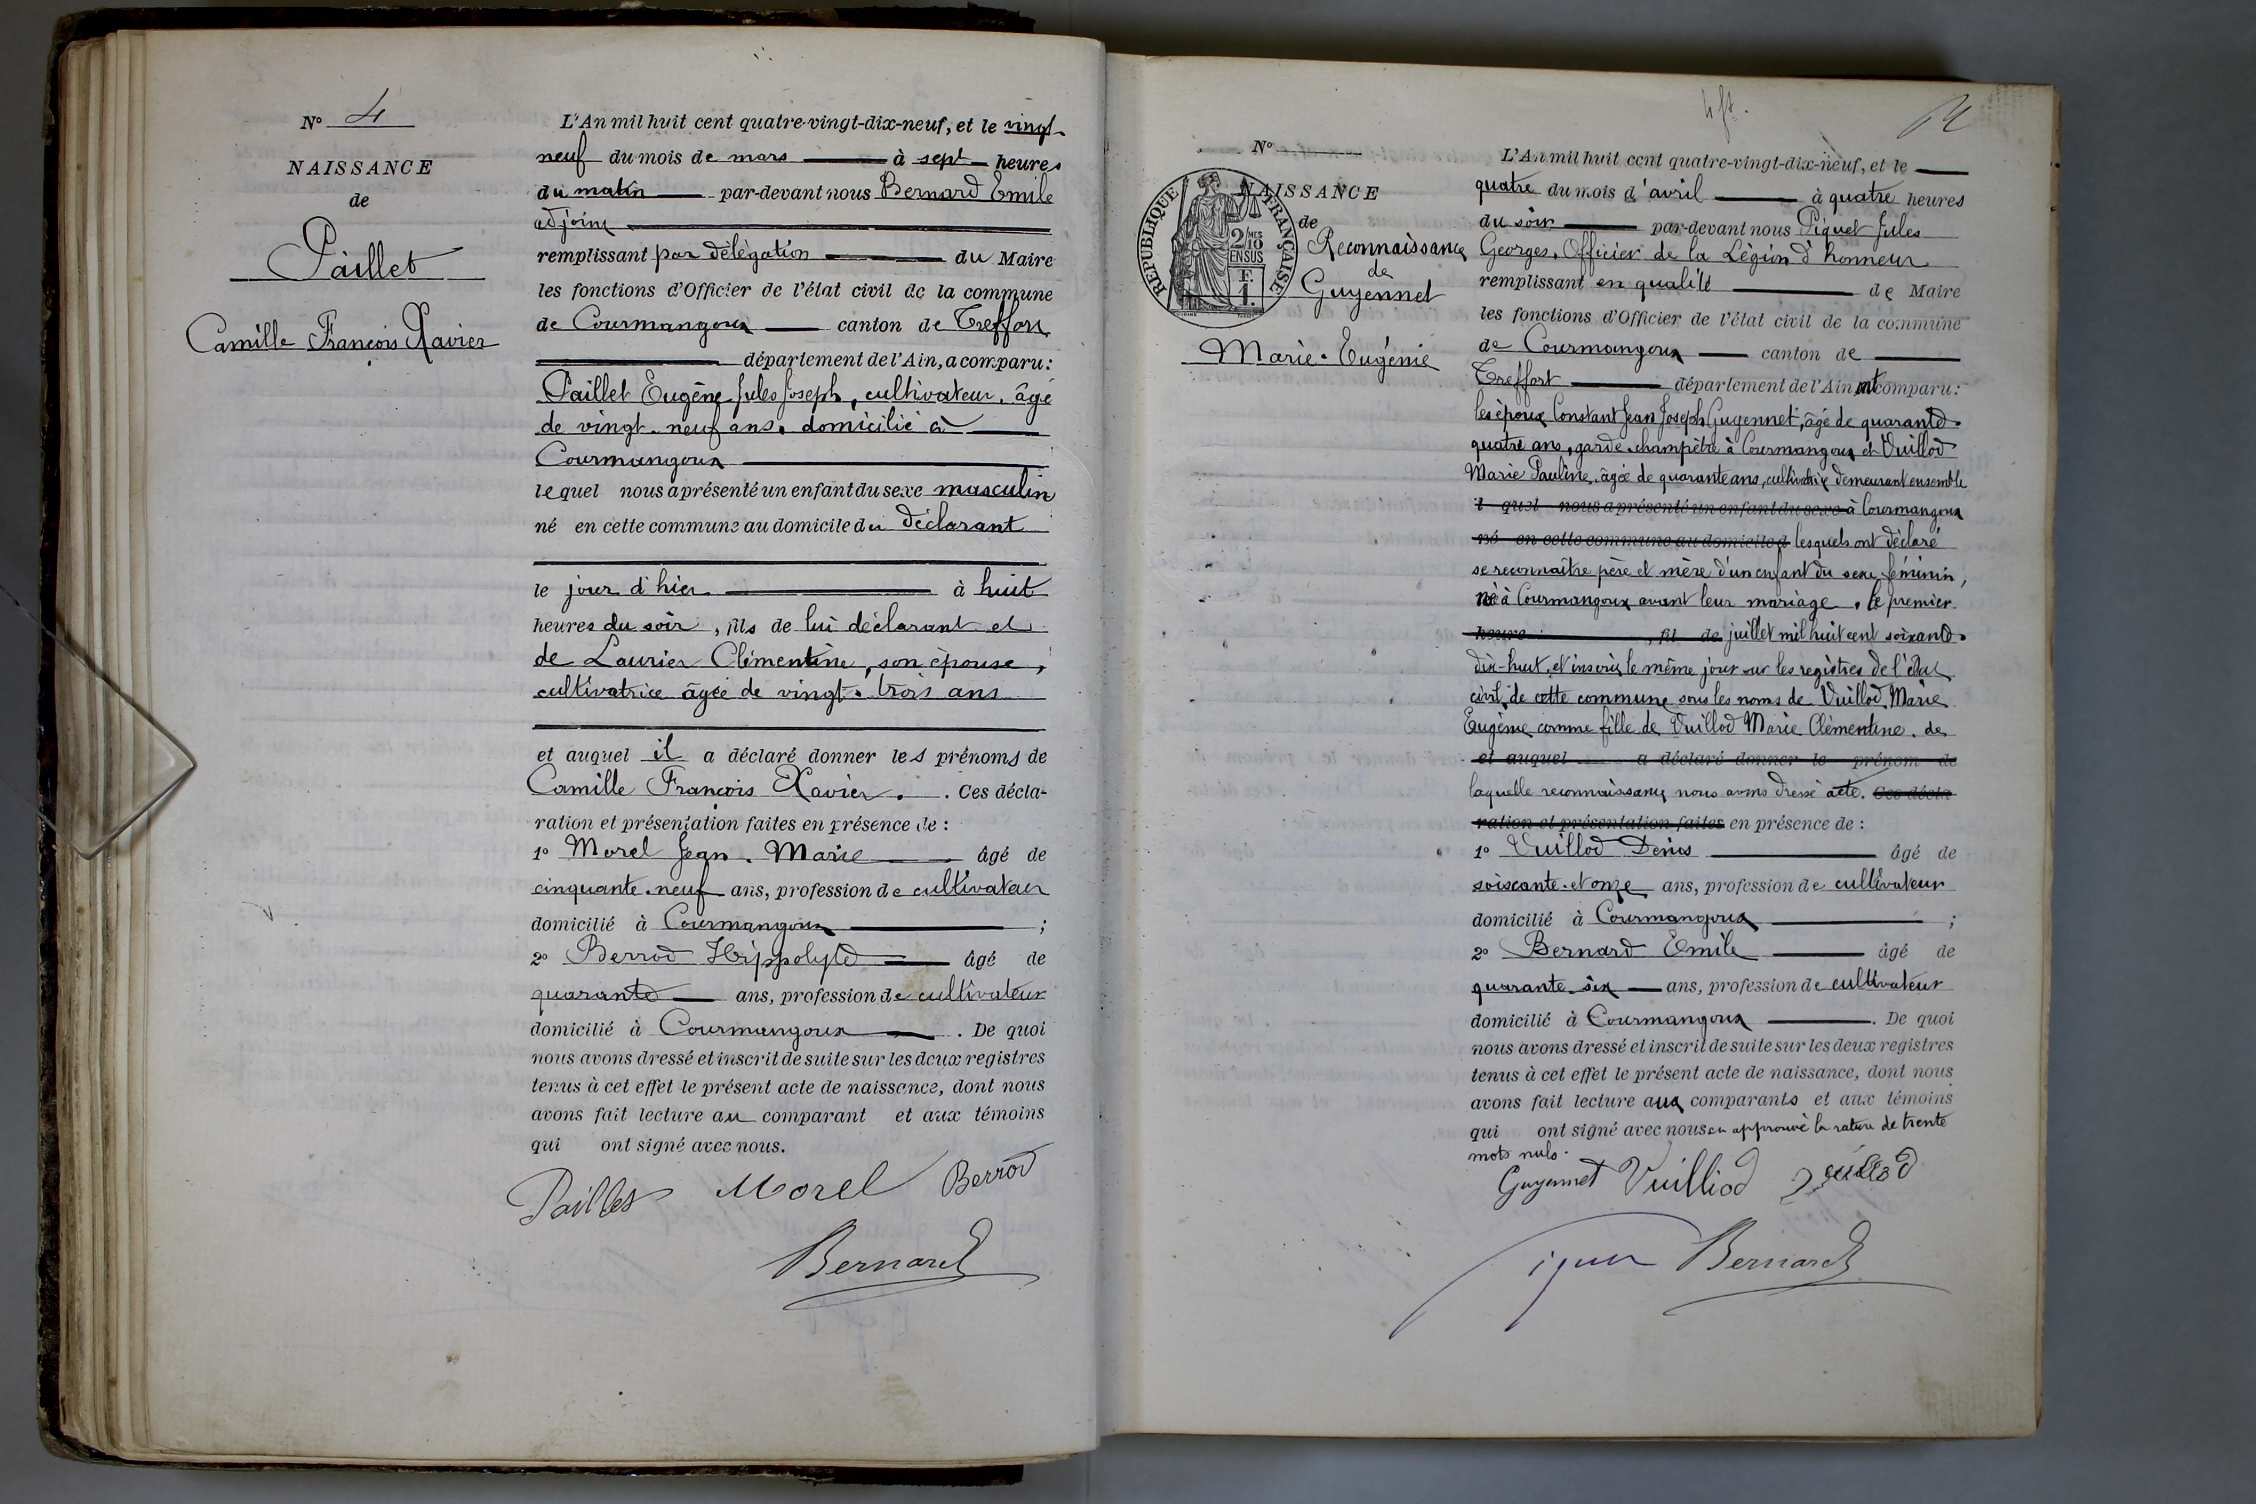 N° 4
NAISSANCE
de
Paillet
Camille François Xavier
L'An mil huit cent quatre-vingt-dix-neuf, et le vingt-
neuf du mois de mars à sept heures
du matin par-devant nous Bernard Emile
adjoint
remplissant par délégation du Maire
les fonctions d'Officier de l'état civil de la commune
de Courmangoux canton de Treffort
département de l'Ain, a comparu:
Paillet Eugène Jules Joseph, cultivateur, âgé
de vingt-neuf ans, domicilié à
Courmangoux
lequel nous a présenté un enfant du sexe masculin
né en cette commune au domicile du déclarant
le jour d'hier à huit
heures du soir, fils de lui déclarant et
de Laurier Clémentine, son épouse,
cultivatrice âgée de vingt-trois ans
et auquel il a déclaré donner les prénoms de
Camille François Xavier. Ces décla-
ration et présentation faites en présence de :
1° Morel Jean-Marie âgé de
cinquante-neuf ans, profession de cultivateur
domicilié à Courmangoux ;
2° Berrod Hippolyte âgé de
quarante ans, profession de cultivateur
domicilié à Courmangoux. De quoi
nous avons dressé et inscrit de suite sur les deux registres
tenus à cet effet le présent acte de naissance, dont nous
avons fait lecture au comparant et aux témoins
qui ont signé avec nous.
Paillet Morel Berrod
Bernard
N°
NAISSANCE
de
Reconnaissance
de
Guyennet
Marie-Eugénie
RÉPUBLIQUE FRANÇAISE
2/10 MES
EN SUS
F.
1.
L'An mil huit cent quatre-vingt-dix-neuf, et le
quatre du mois d'avril à quatre heures
du soir par-devant nous Piquet Jules
Georges, Officier de la Légion d'honneur
remplissant en qualité de Maire
les fonctions d'Officier de l'état civil de la commune
de Courmangoux canton de
Treffort département de l'Ain ont comparu:
les époux Constant Jean Joseph Guyennet, âgé de quarante-
quatre ans, garde-champêtre à Courmangoux et Vuillod
Marie Pauline, âgée de quarante ans, cultivatrix demeurant ensemble
l quel nous a présenté un enfant du sexe à Courmangoux
né en cette commune au domicile d lesquels ont déclaré
se reconnaître père et mère d'un enfant du sexe féminin,
né à Courmangoux avant leur mariage, le premier
heure , fil de juillet mil huit cent soixante-
dix-huit, et inscrit le même jour sur les registres de l'état
civil de cette commune sous les noms de Vuillod Marie
Eugénie comme fille de Vuillod Marie Clémentine. de
et auquel a déclaré donner le prénom de
laquelle reconnaissance nous avons dressé acte. Ces décla-
ration et présentation faites en présence de :
1° Vuillod Denis âgé de
soixante-et-onze ans, profession de cultivateur
domicilié à Courmangoux ;
2° Bernard Emile âgé de
quarante-six ans, profession de cultivateur
domicilié à Courmangoux. De quoi
nous avons dressé et inscrit de suite sur les deux registres
tenus à cet effet le présent acte de naissance, dont nous
avons fait lecture aux comparants et aux témoins
qui ont signé avec nous en approuvé la rature de trente
mots nuls.
Guyennet Vuilliod Vuillod
Piquet Bernard